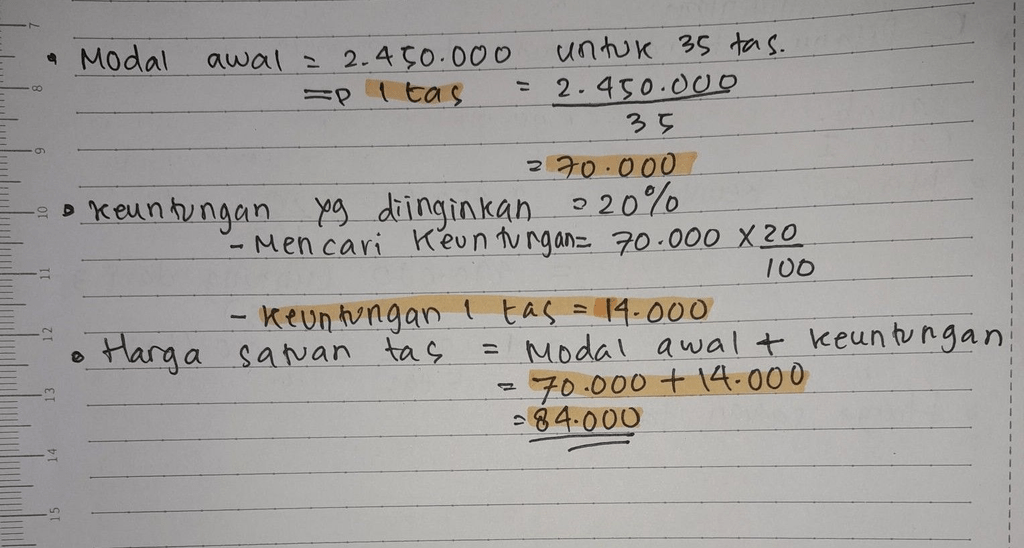 • Modal awal = 2.450.000 untuk 35 tas.
=P 1 tas = 2.450.000
35
= 70.000
• Keuntungan yg diinginkan = 20%
- Mencari Keuntungan = 70.000 X 20
100
- Keuntungan 1 tas = 14.000
• Harga satuan tas = Modal awal + keuntungan
= 70.000 + 14.000
= 84.000
7
8
9
10
11
12
13
14
15